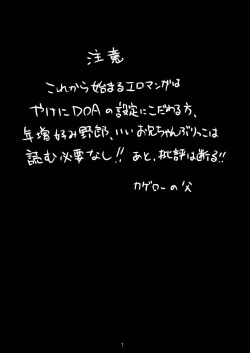 注意
これから始まるエロマンガは
やけにDOAの設定にこだわる方、
年増好み野郎、いいお兄ちゃんぶりっこは
読む必要なし!! あと、批評は断る!!
カゲローの父
1